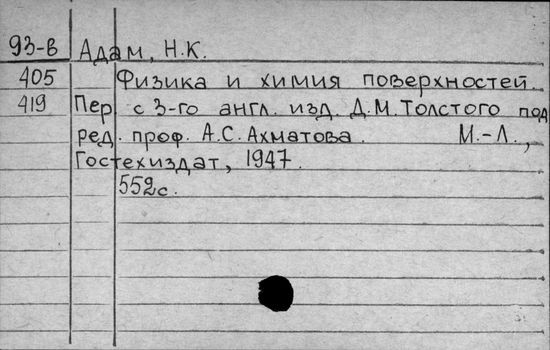 93-в Адам, Н.К.
405 Физика и химия поверхностей.
419 Пер. с 3-го англ. изд. Д.М.Толстого под
ред. проф. А.С.Ахматова. М.-Л.,
Гостехиздат, 1947.
552с.